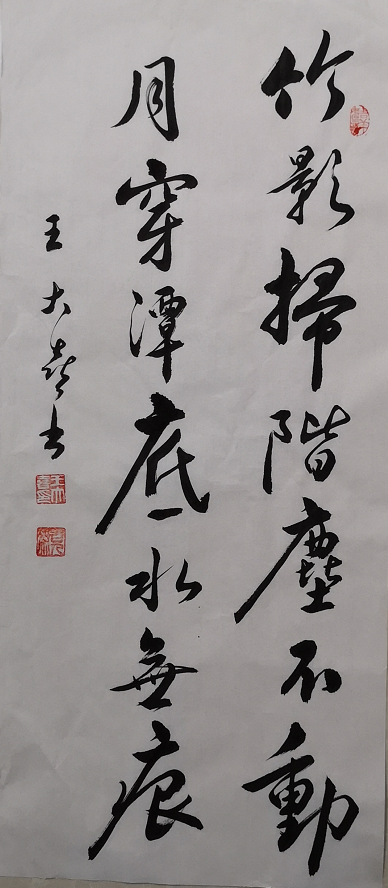 竹影掃階塵不動
月穿潭底水無痕
王大喜书